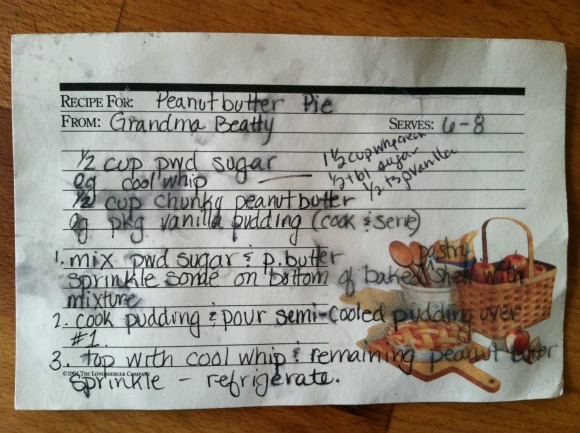 RECIPE FOR: Peanutbutter Pie
FROM: Grandma Beatty SERVES: 6-8
1/2 cup pwd sugar
1 1/2 cup whip cream
1/2 + bl sugar
1/2 ts vanilla
8g cool whip
1/2 cup chunky peanutbutter
8g pkg vanilla pudding (cook & serve)
1. mix pwd sugar & p. butter
sprinkle some on bottom of baked pastry shell with
mixture
2. cook pudding & pour semi-cooled pudding over
#1.
3. top with cool whip & remaining peanut butter
sprinkle - refrigerate.
©1994 THE LONGABERGER COMPANY